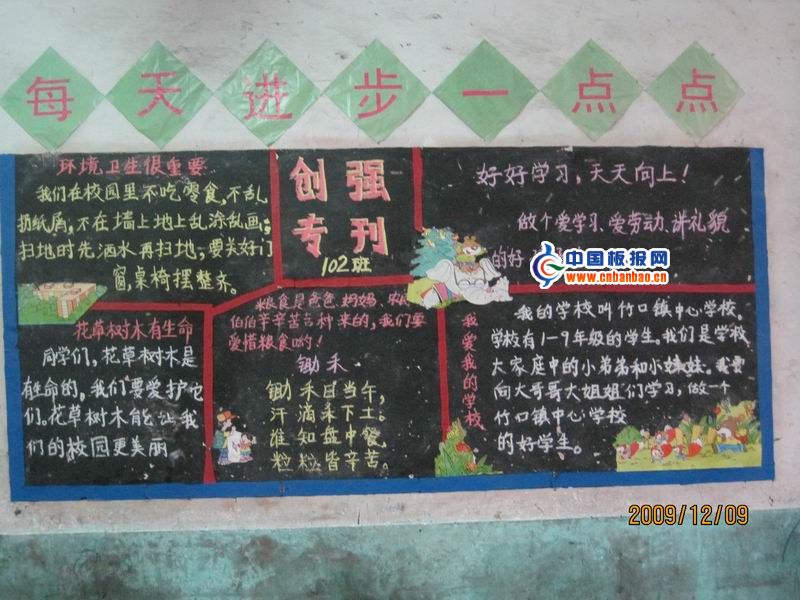 每天进步一点点
环境卫生很重要
我们在校园里不吃零食,不乱
扔纸屑,不在墙上地上乱涂乱画;
扫地时先洒水再扫地,要关好门
窗,桌椅摆整齐。
创强
专刊
102班
好好学习,天天向上!
做个爱学习、爱劳动、讲礼貌
的好
中国板报网
www.cnbanbao.cn
花草树木有生命
同学们,花草树木是
有生命的,我们要爱护它
们。花草树木能让我
们的校园更美丽
粮食是爸爸、妈妈、农民
伯伯辛辛苦苦种来的,我们要
爱惜粮食哟!
锄禾
锄禾日当午,
汗滴禾下土;
谁知盘中餐,
粒粒皆辛苦。
我爱我的学校
我的学校叫竹口镇中心学校。
学校有1-9年级的学生。我们是学校
大家庭中的小弟弟和小妹妹。我要
向大哥哥大姐姐们学习,做一个
竹口镇中心学校
的好学生。
2009/12/09